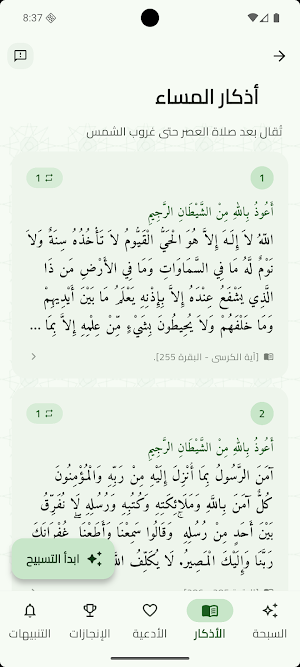 8:37
أذكار المساء
تُقال بعد صلاة العصر حتى غروب الشمس
1
1
أَعُوذُ بِاللهِ مِنَ الشَّيْطَانِ الرَّجِيمِ
اللّهُ لاَ إِلَـهَ إِلاَّ هُوَ الْحَيُّ الْقَيُّومُ لاَ تَأْخُذُهُ سِنَةٌ وَلاَ
نَوْمٌ لَّهُ مَا فِي السَّمَاوَاتِ وَمَا فِي الأَرْضِ مَن ذَا
الَّذِي يَشْفَعُ عِنْدَهُ إِلاَّ بِإِذْنِهِ يَعْلَمُ مَا بَيْنَ أَيْدِيهِمْ
وَمَا خَلْفَهُمْ وَلاَ يُحِيطُونَ بِشَيْءٍ مِّنْ عِلْمِهِ إِلاَّ بِمَا ...
[آية الكرسى - البقرة 255].
2
1
أَعُوذُ بِاللهِ مِنَ الشَّيْطَانِ الرَّجِيمِ
آمَنَ الرَّسُولُ بِمَا أُنْزِلَ إِلَيْهِ مِنْ رَبِّهِ وَالْمُؤْمِنُونَ
كُلٌّ آمَنَ بِاللَّهِ وَمَلَائِكَتِهِ وَكُتُبِهِ وَرُسُلِهِ لَا نُفَرِّقُ
بَيْنَ أَحَدٍ مِنْ رُسُلِهِ ۚ وَقَالُوا سَمِعْنَا وَأَطَعْنَا ۖ غُفْرَانَكَ
رَبَّنَا وَإِلَيْكَ الْمَصِيرُ. لَا يُكَلِّفُ
ابدأ التسبيح
السبحة
الأذكار
الأدعية
الإنجازات
التنبيهات